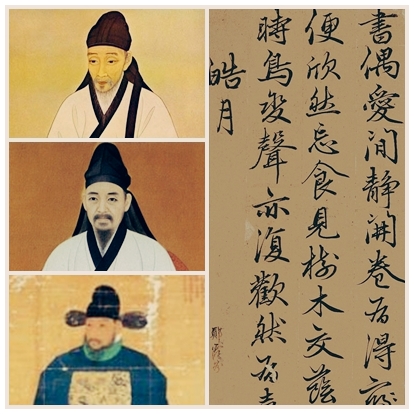 書偶愛閒靜開卷有得
便欣然忘食見樹木交蔭
時鳥變聲亦復歡然有喜
皓月